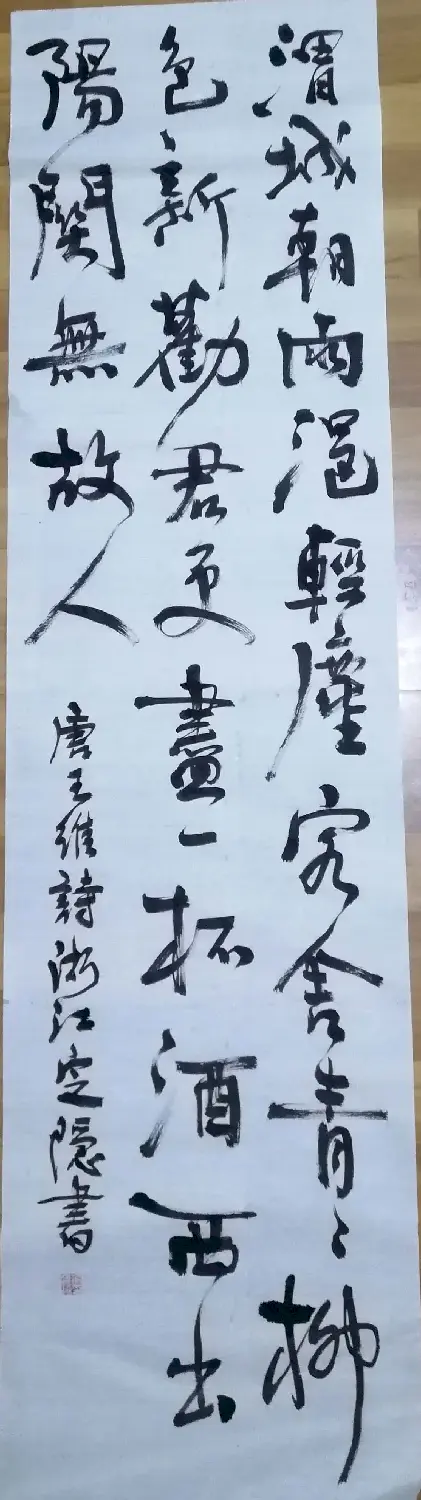 渭城朝雨浥輕塵客舍青〻柳
色新勸君更盡一杯酒西出
陽關無故人
唐王維詩浙江定隱書